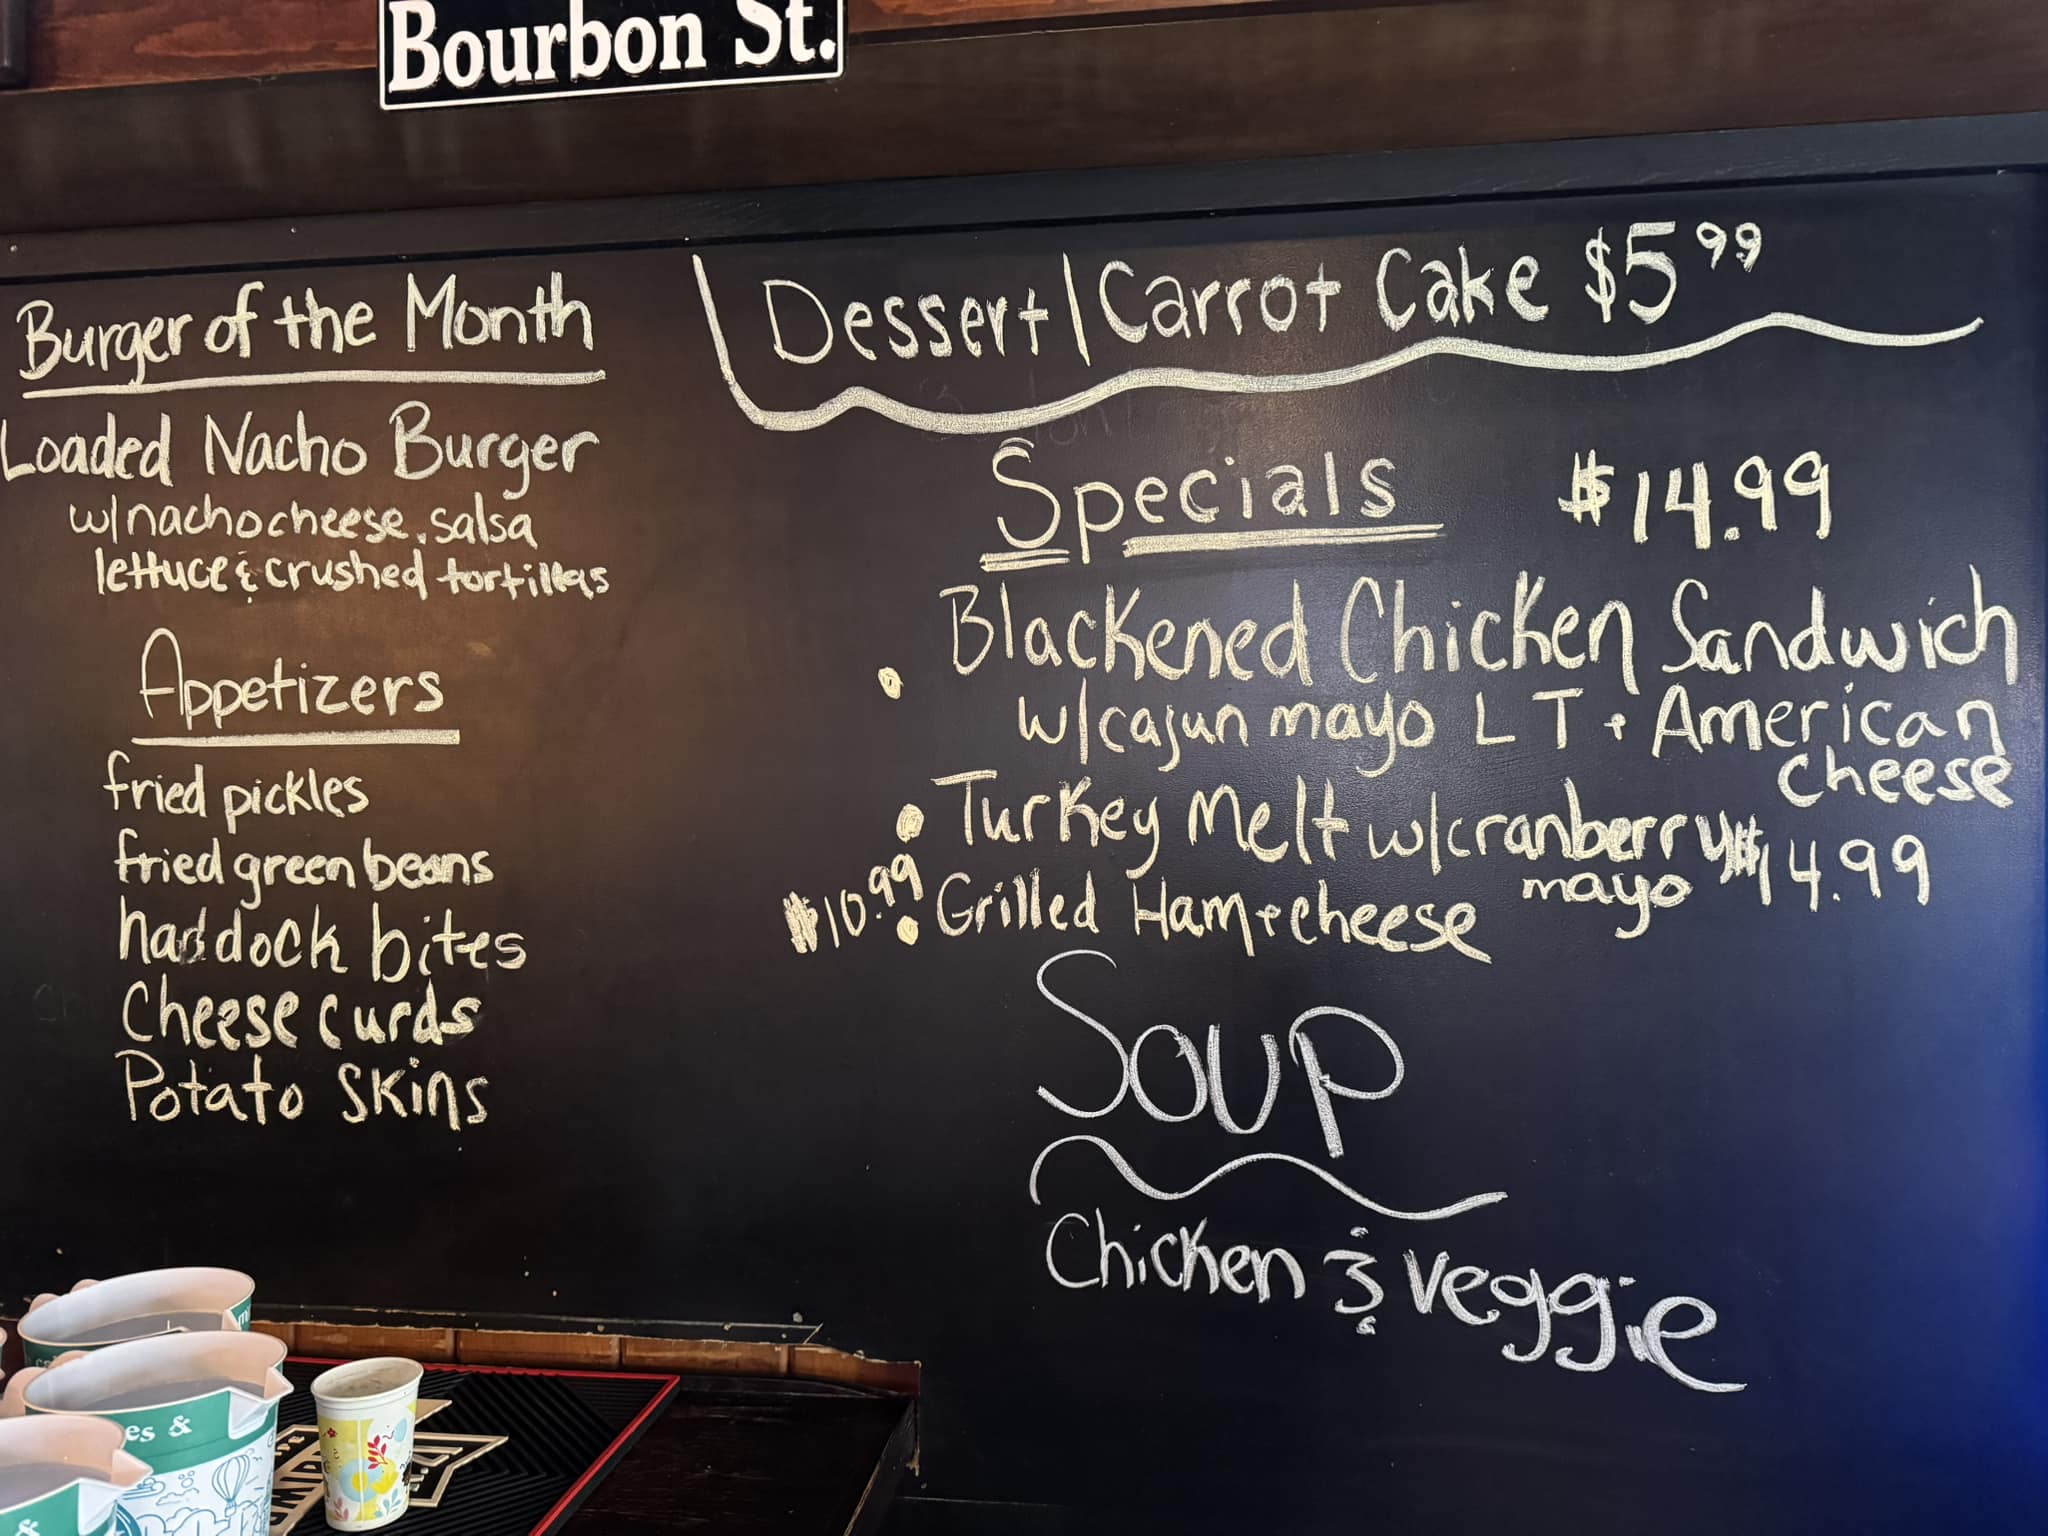 Bourbon St.
Burger of the Month
Loaded Nacho Burger
w/nacho cheese, salsa
lettuce & crushed tortillas
Appetizers
fried pickles
fried green beans
haddock bites
Cheese curds
Potato Skins
Dessert | Carrot Cake $5.99
Specials $14.99
• Blackened Chicken Sandwich
w/cajun mayo L T + American
cheese
• Turkey Melt w/cranberry
mayo $14.99
$10.99 • Grilled Ham + cheese
Soup
Chicken & Veggie
es &
&